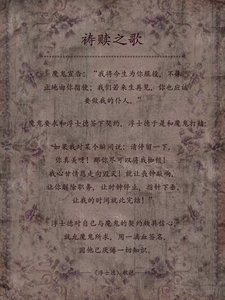 祷赎之歌
魔鬼宣告："我将今生为你服役，不休
止地由你指使；我们若来生再见，你也应该
要做我的仆人。"
魔鬼要求和浮士德签下契约，浮士德于是和魔鬼打赌：
"如果我对某个瞬间说：请停留一下，
你真美呀！那你尽可以将我枷锁！
我心甘情愿走向毁灭！就让丧钟敲响，
让你解除职务，让时钟停止，指针下垂，
让我的时间就此完结！"
浮士德对自己与魔鬼的契约颇具信心，
就如魔鬼所求，用一滴血签名，
因他已厌倦一切知识。
《浮士德》